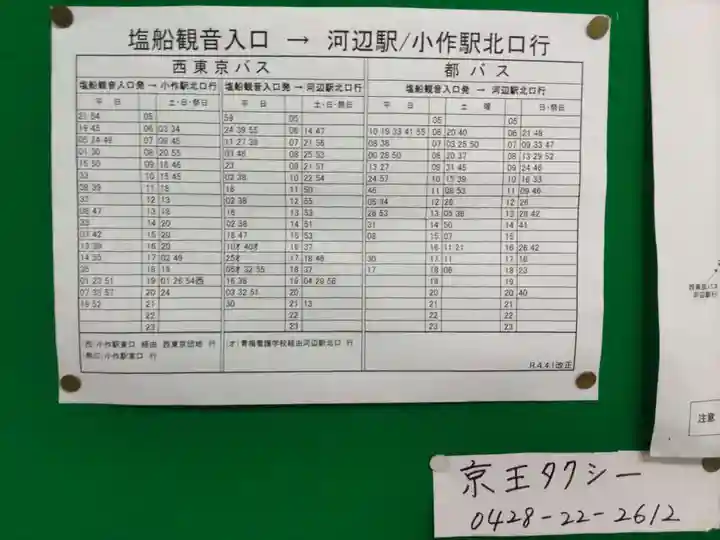 塩船観音入口 → 河辺駅/小作駅北口行
西東京バス 都バス
塩船観音入口発 → 小作駅北口行 塩船観音入口発 → 河辺駅北口行 塩船観音入口発 → 河辺駅北口行
平 日 土・日・祭日 平 日 土・日・祭日 平 日 土 曜 日・祭日
21 54 05 59 05 05 05
19 45 06 03 34 24 39 55 06 14 47 10 19 33 41 55 06 20 40 06 21 48
07 09 45 11 27 38 07 21 56 07 03 25 50 07 09 33 47
01 30 08 20 55 08 25 53 00 28 50 08 20 37 08 13 29 52
15 50 09 23 09 21 51 13 27 09 31 45 09 24 46
33 10 15 45 02 38 10 22 54 24 57 10 15 39 10 16 33
11 18 18 11 50 46 11 08 53 11 09 46
33 12 13 02 38 12 55 12 28 12 26
08 47 13 18 18 13 53 28 53 13 13 28 42
33 14 20 02 38 14 51 31 14 50 14 41
15 20 18 47 15 53 08 15 07 15
16 20 16 37 16 11 21 16 26 42
17 02 49 17 18 46 30 17 11 17 18
18 18 37 17 18 06 18 23
01 23 51 19 01 26 54西 16 38 19 04 29 56 19 19
20 24 03 32 51 20 20 20 40
18 52 21 30 21 13 21 21
22 22 22 22
23 23 23 23
西:小作駅東口 経由 西東京団地 行
無印:小作駅東口 行
(オ)青梅看護学校経由河辺駅北口 行
R.4.4.1改正
西東京バス
京辺駅行
注意
京王タクシー
0428-22-2612